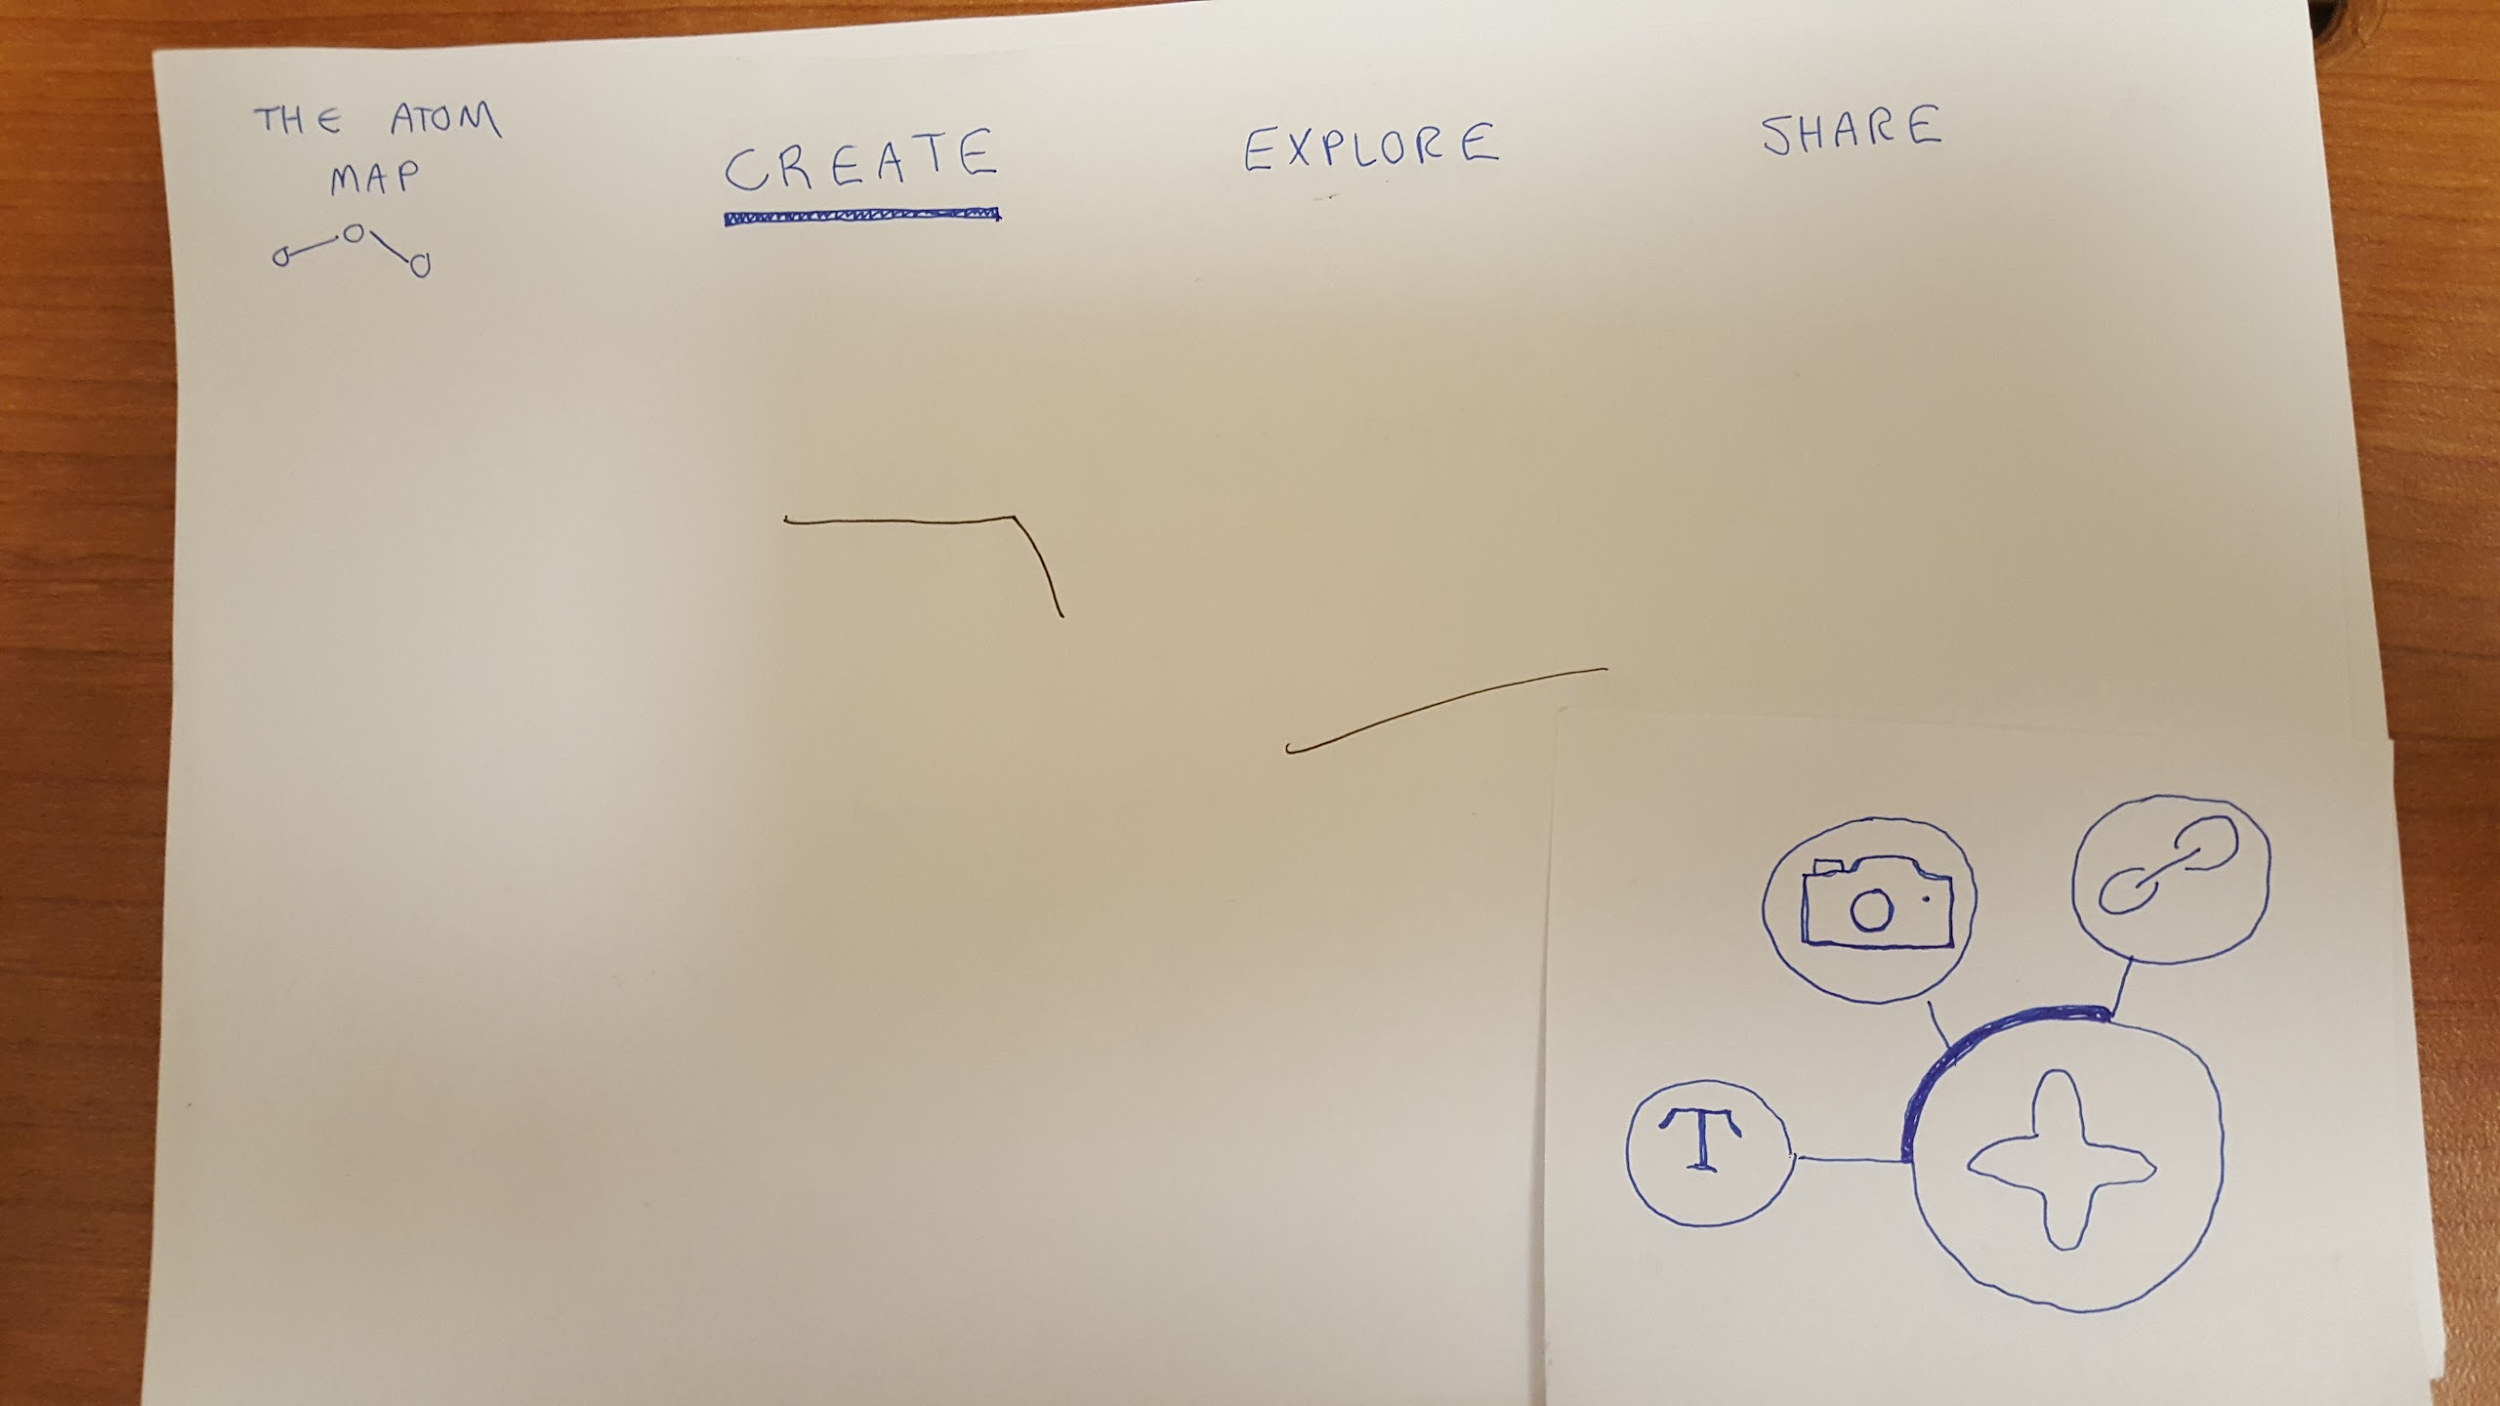 THE ATOM
MAP
CREATE
EXPLORE
SHARE
T